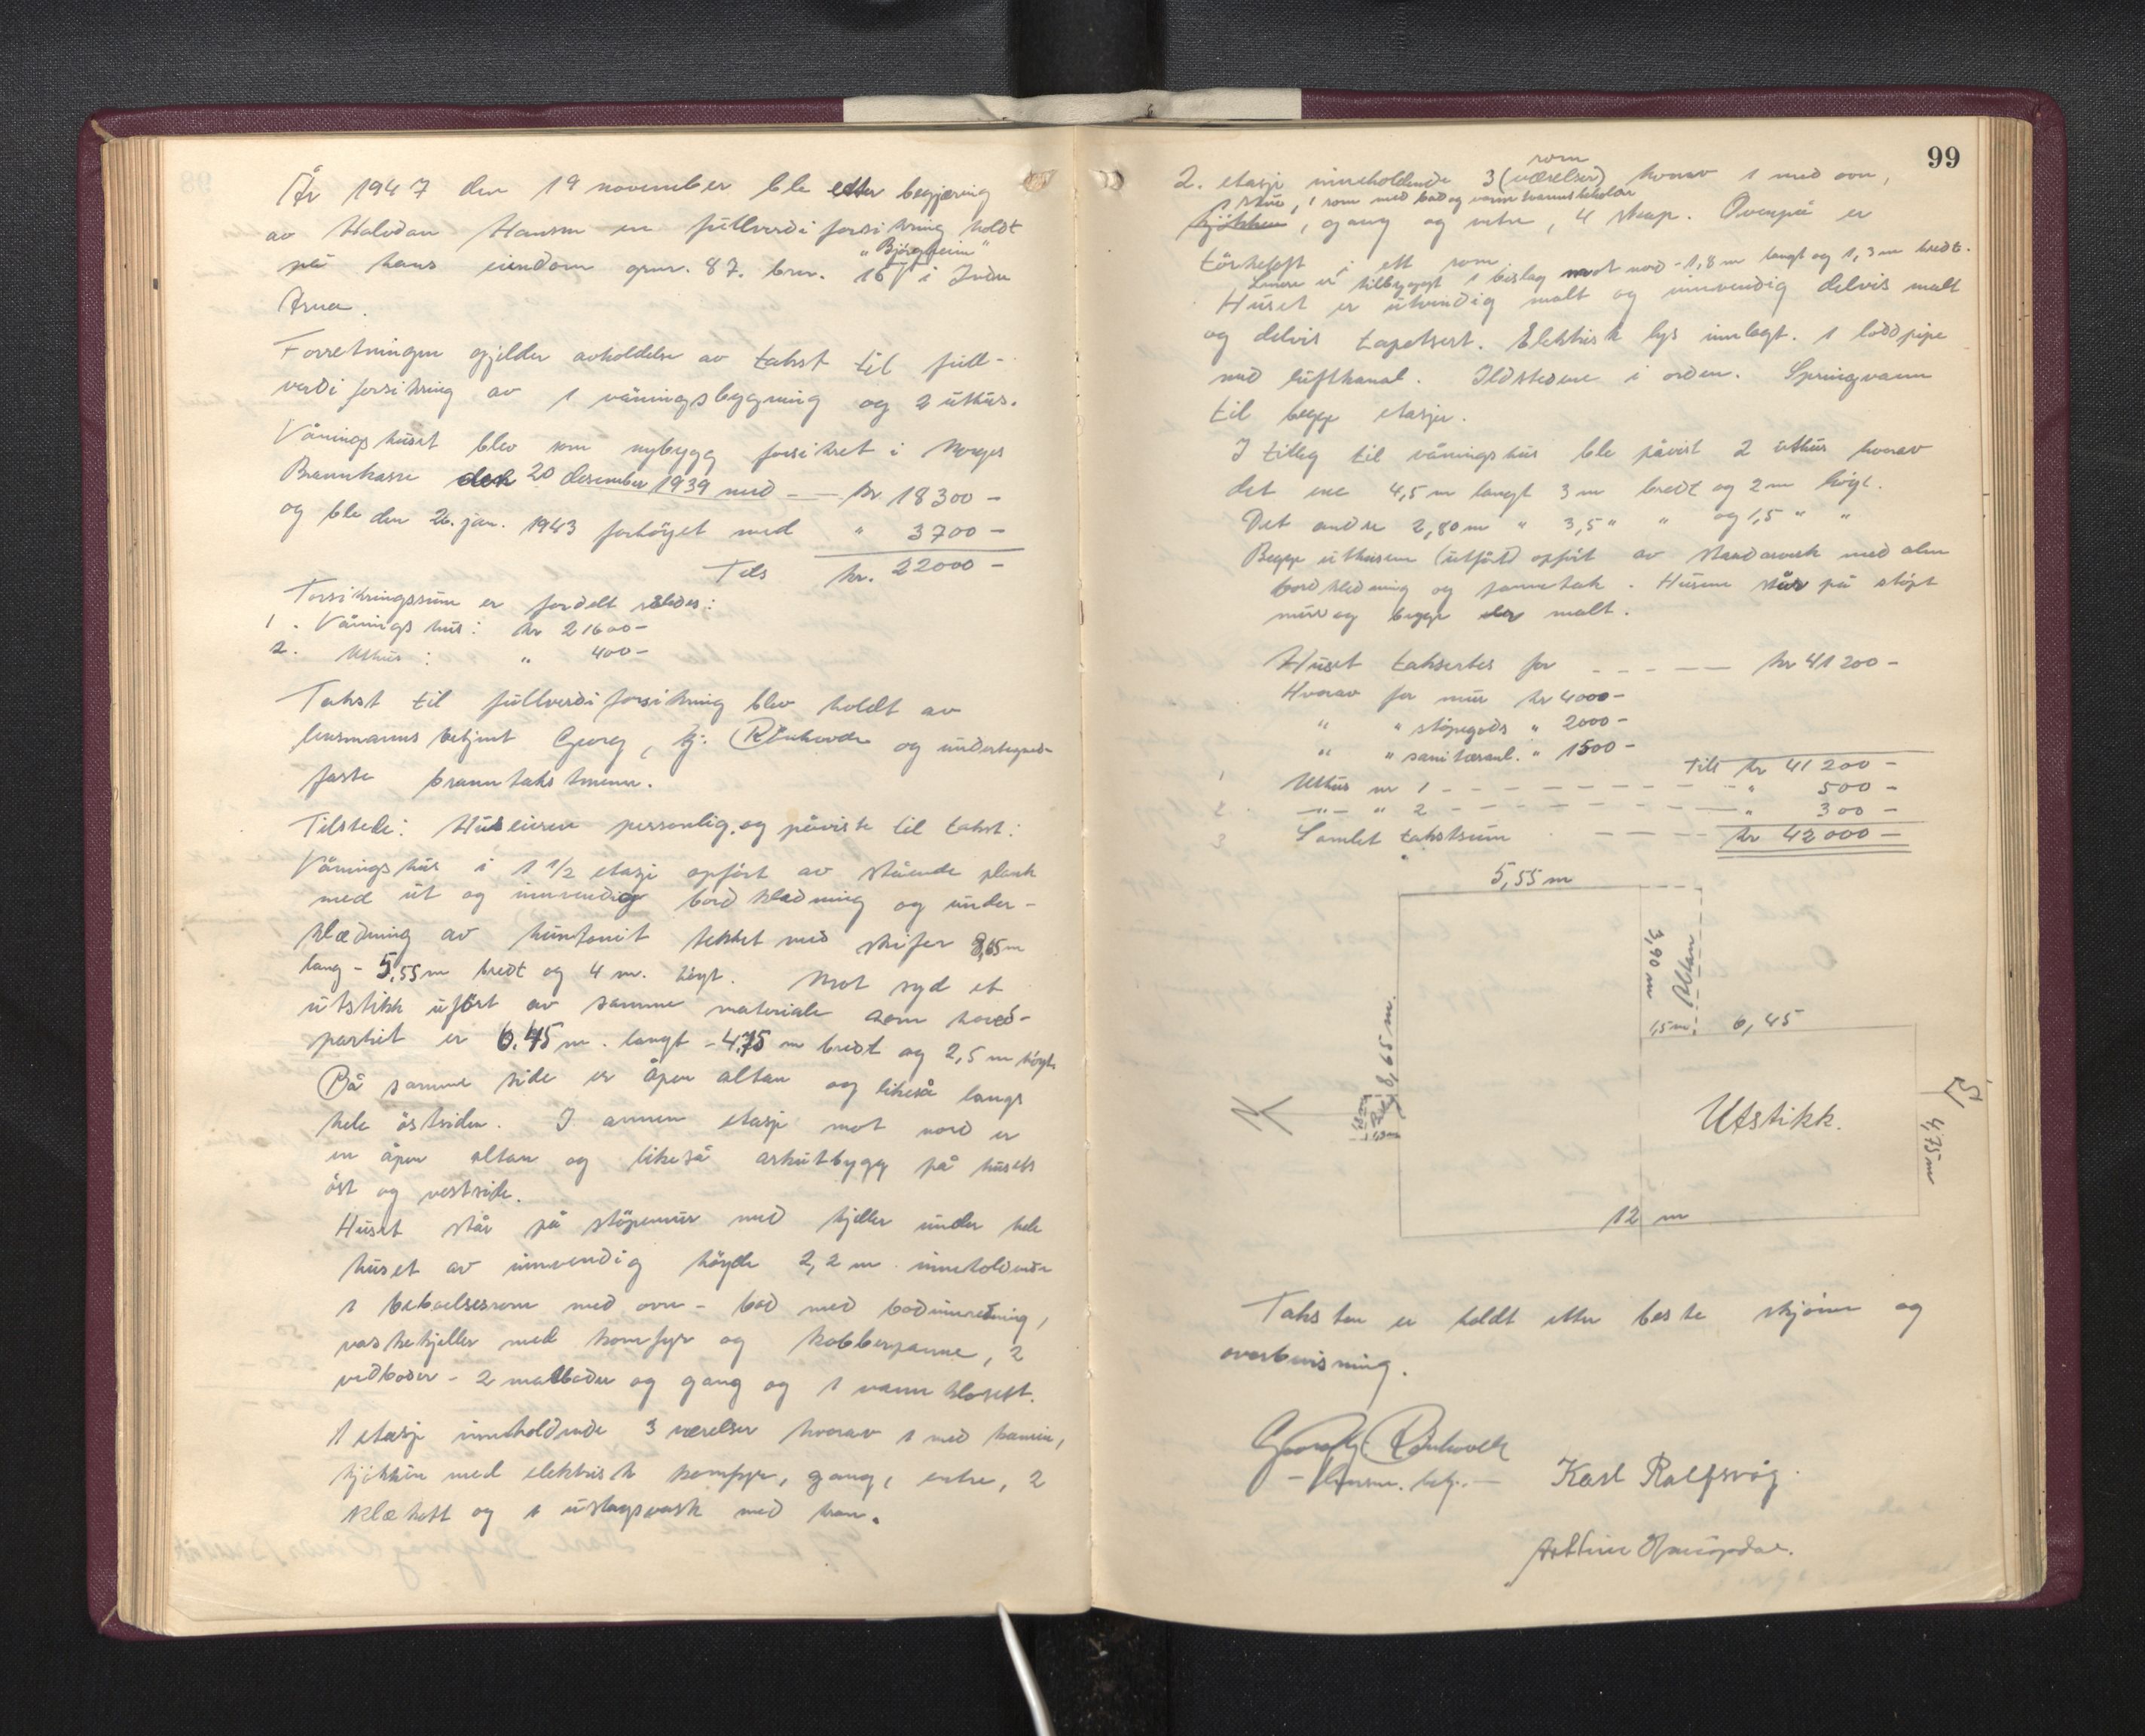 År 1947 den 19 november ble etter begjæring
av Halvdan Hansen en fullverdiforsikring holdt
på hans eiendom gnr. 87. bnr. 16 "Bjørgheim" i Indre
Arna.
Forretningen gjelder avholdelse av takst til full-
verdiforsikring av 1 våningsbygning og 2 uthus.
Våningshuset blev som nybygg forsikret i Norges
Brannkasse den 20 desember 1939 med - — kr 18300 -
og ble den 26. jan. 1943 forhöyet med " 3700 -
Tils kr. 22000 -
Forsikringssum er fordelt således:
1. Våningshus: kr 21600 -
2. Uthus: " 400 -
Takst til fullverdiforsikring blev holdt av
lensmannsbetjent Georg, Kj. Rönhovde og undertegnede
faste branntakstmenn.
Tilstede: Huseieren personlig, og påviste til takst:
Våningshus i 1 1/2 etasje opført av stående plank
med ut og innvendig bordkledning og under-
klædning av huntonit tekket med skifer 8,65 m
lang - 5,55 m bredt og 4 m. högt. Mot syd et
utstikk uført av samme materiale som hoved-
partiet er 6.45 m. langt - 4,75 m bredt og 2,5 m högt.
På samme side er åpen altan og likeså langs
hele östsiden. I annen etasje mot nord er
en åpen altan og likeså arkutbygg på husets
öst og vestside.
Huset står på stöpemur med kjeller under hele
huset av innvendig höyde 2,2 m inneholdende
1 beboelsesrom med ovn - bad med badinnredning,
vaskekjeller med komfyr og kobberpanne, 2
vedboder - 2 matboder og gang og 1 vannklosett.
1 etasje inneholdende 3 værelser hvorav 1 med kamin,
kjökken med elektrisk komfyr, gang, entre, 2
klæskott og 1 utslagsvask med kran.
99
2. etasje inneholdende 3 (værelser) rom hvorav 1 med ovn,
1 stue, 1 rom med bad og varmtvannsbeholder
kjökken, gang og entre, 4 skap. Ovenpå er
törkeloft i ett rom.
Senere er tilbygget 1 bislag mot nord - 1,8 m langt og 1,3 m bredt.
Huset er utvendig malt og innvendig delvis malt
og delvis tapetsert. Elektrisk lys innlagt. 1 loddpipe
med luftkanal. Ildstedene i orden. Springvann
til begge etasjer.
I tilleg til våningshus ble påvist 2 uthus hvorav
det ene 4,5 m langt 3 m bredt og 2 m högt.
Det andre 2,80 m " 3,5 " " og 1,5 " "
Begge uthusene (utført) opført av standarverk med alm
bordkledning og panntak. Husene står på stöpt
mur og begge er malt.
Huset taksertes for - - - - — kr 41200 -
Hvorav for mur kr 4000 -
" " stöpegods " 2000 -
" " sanitæranl. " 1500 -
Tils kr 41200 -
1 Uthus nr 1 - - - - - - " 500 -
2 -"- " 2 - - - - - - " 300 -
3 Samlet takstsum - — — — kr 42000 -
5,55 m
3,90 m
Altan
1,5 m.
6,45
8,65 m.
N
1,8 m
1,3 m
Utstikk.
S
4,75 m
12 m
Taksten er holdt etter beste skjønn og
overbevisning.
Georg Kj. Rönhovde
- lensm. betj. - Karl Ralfsvåg.